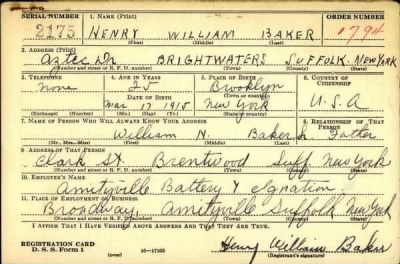 SERIAL NUMBER 1. NAME (Print) ORDER NUMBER
2175 HENRY WILLIAM BAKER 1794
(First) (Middle) (Last)
2. ADDRESS (Print)
Aztec Dr BRIGHTWATERS SUFFOLK NEW YORK
(Number and street or R. F. D. number) (Town) (County) (State)
3. TELEPHONE 4. AGE IN YEARS 5. PLACE OF BIRTH 6. COUNTRY OF CITIZENSHIP
none 25 Brooklyn
DATE OF BIRTH (Town or county)
Mar 17 1915 New York U.S.A
(Exchange) (Number) (Mo.) (Day) (Yr.) (State or country)
7. NAME OF PERSON WHO WILL ALWAYS KNOW YOUR ADDRESS 8. RELATIONSHIP OF THAT PERSON
William H. Baker Father
(First) (Middle) (Last)
9. ADDRESS OF THAT PERSON
Clark St. Brentwood Suff. New York
(Number and street or R. F. D. number) (Town) (County) (State)
10. EMPLOYER'S NAME
Amityville Battery & Ignation
11. PLACE OF EMPLOYMENT OR BUSINESS
Broadway, Amityville Suffolk New York
(Number and street or R. F. D. number) (Town) (County) (State)
I AFFIRM THAT I HAVE VERIFIED ABOVE ANSWERS AND THAT THEY ARE TRUE.
REGISTRATION CARD
D. S. S. FORM 1 (over) 16-17105 Henry William Baker
(Registrant's signature)